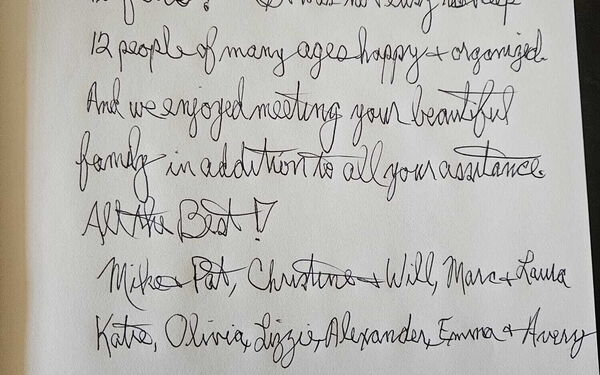 12 people of many ages happy + organized.
And we enjoyed meeting your beautiful
family in addition to all your assitance.
All the Best!
Mike + Pat, Christine + Will, Marc + Laura
Katie, Olivia, Lizzie, Alexander, Emma + Avery